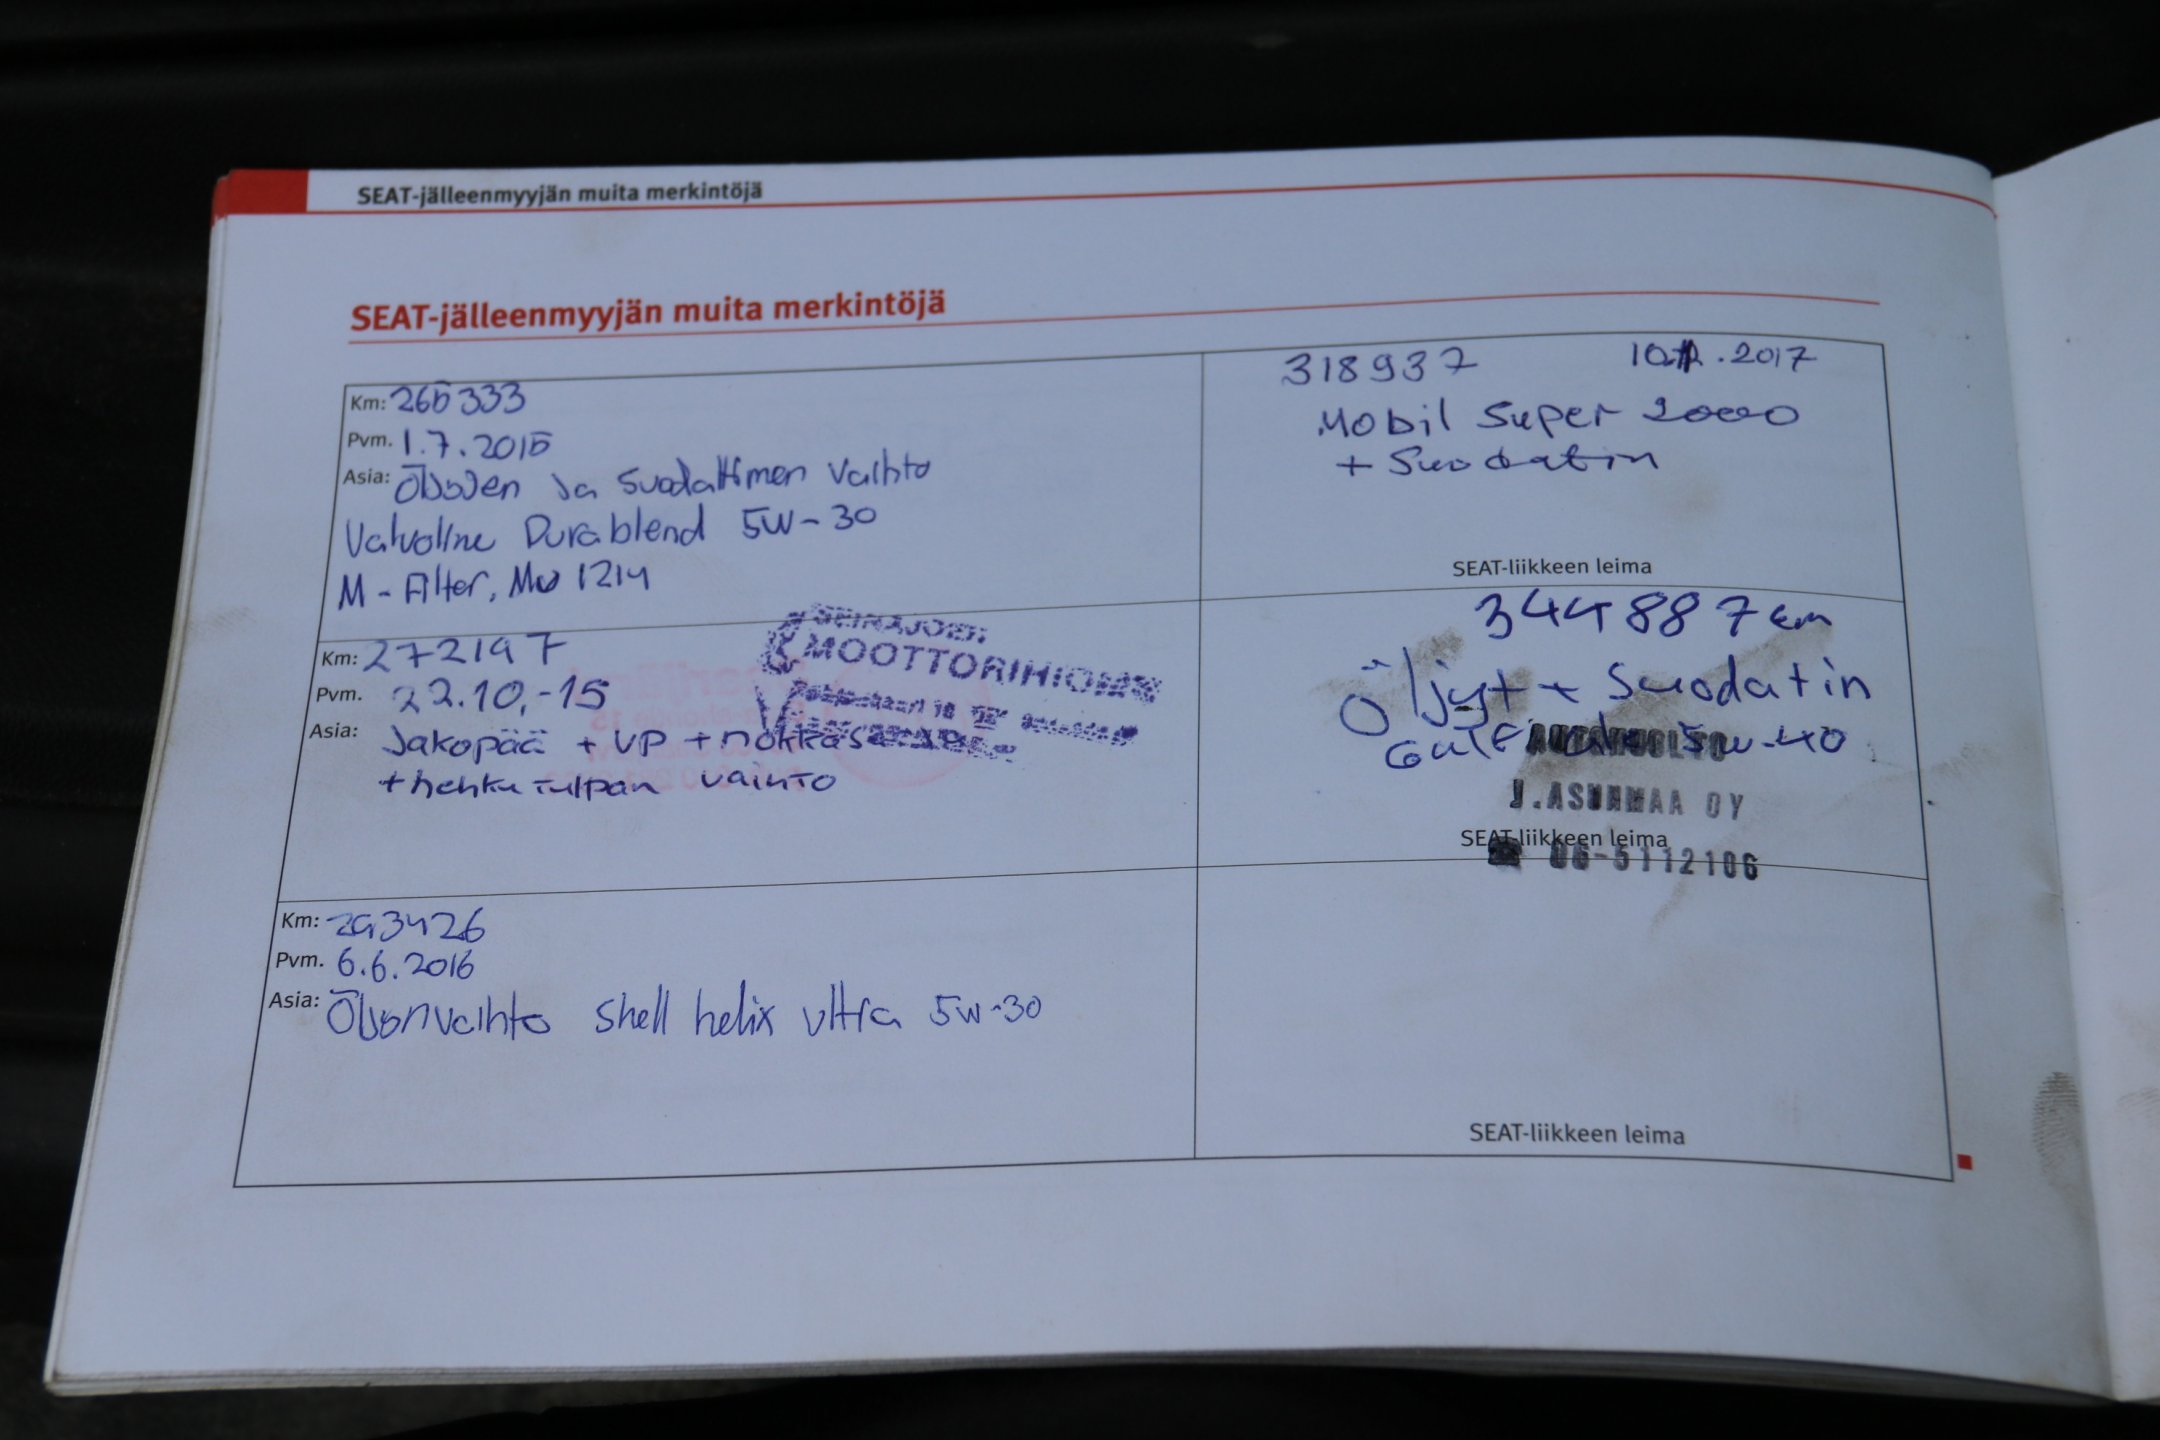 SEAT-jälleenmyyjän muita merkintöjä
SEAT-jälleenmyyjän muita merkintöjä
Km: 265333
Pvm. 1.7.2015
Asia: Öljyjen ja suodattimen vaihto
Valvoline Durablend 5W-30
M-Filter,
Km: 272197
Pvm. 22.10.-15
Asia: Jakopää + VP +
+hehkutulpan vaihto
SEINÄJOEN
MOOTTORIHIOMO
Km: 293426
Pvm. 6.6.2016
Asia: Öljynvaihto Shell helix ultra 5w-30
318937 .2017
Mobil Super 2000
+ Suodatin
SEAT-liikkeen leima
344887 km
Öljyt + Suodatin
Gulf 5w-40
AUTOHUOLTO
J.ASUNMAA OY
SEAT-liikkeen leima
☎ 06-5112106
SEAT-liikkeen leima